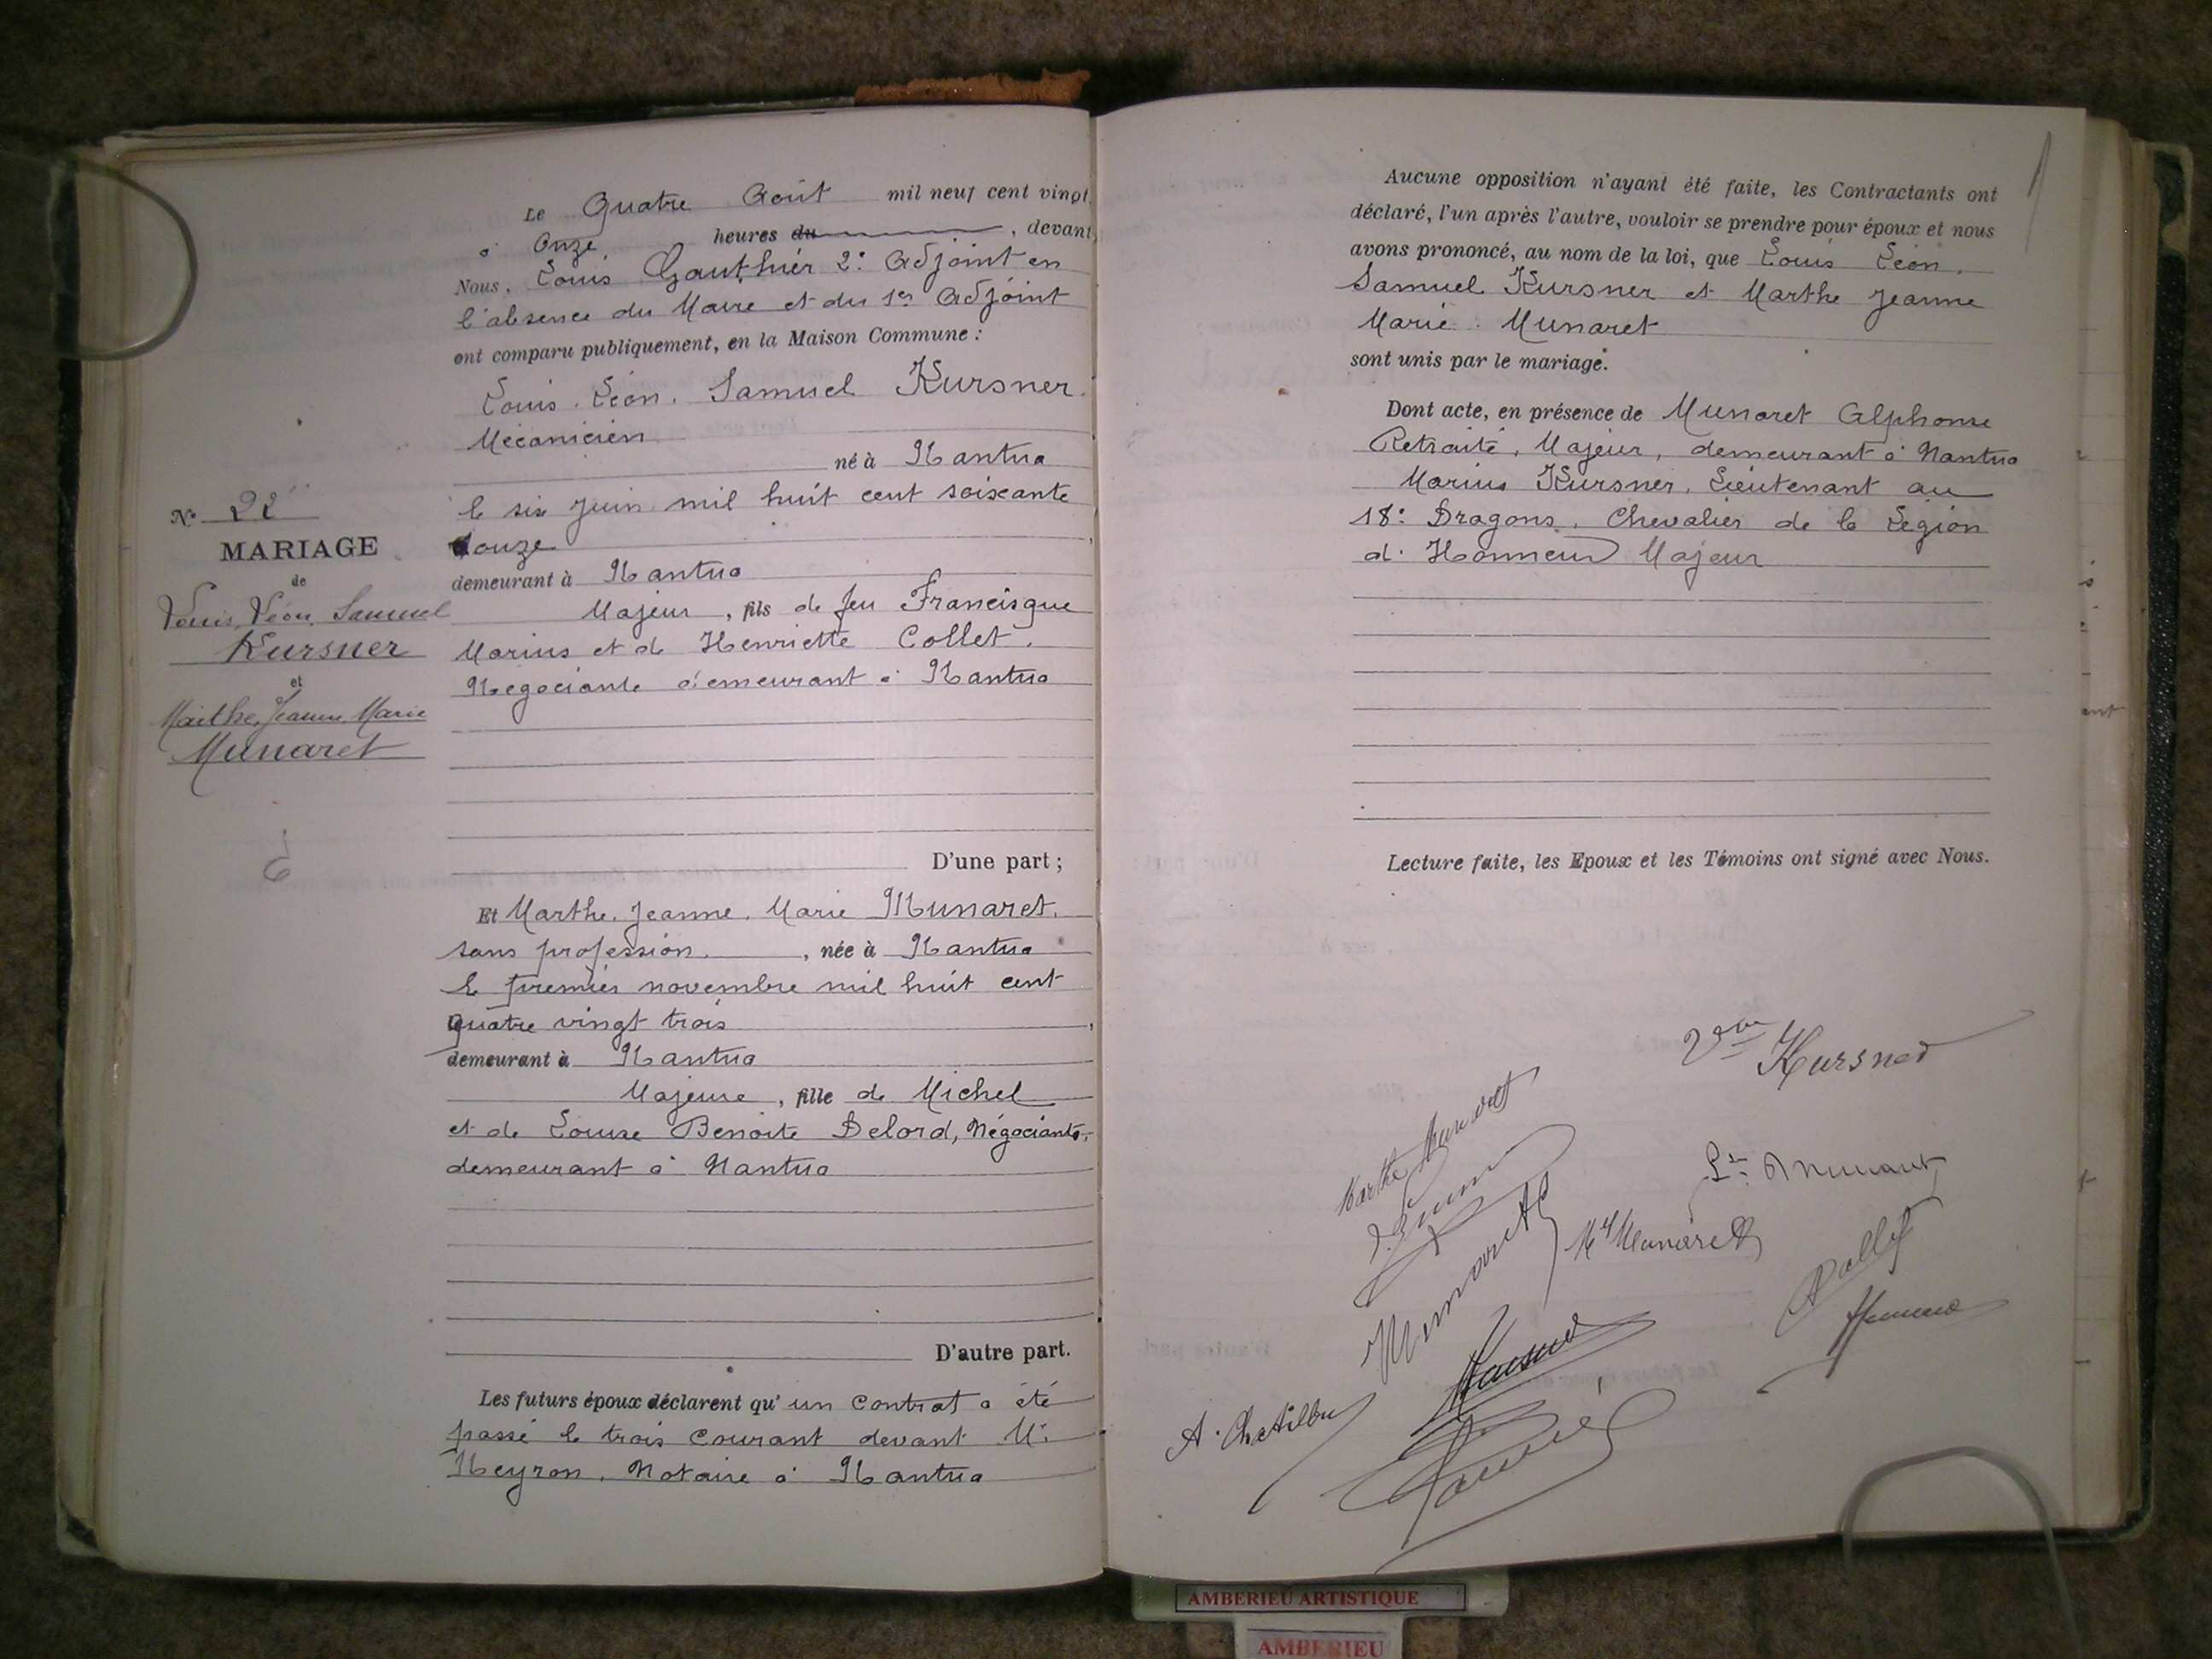 N° 22
MARIAGE
de
Louis, Léon, Samuel
Kursner
et
Marthe, Jeanne, Marie
Munaret
Le Quatre Août mil neuf cent vingt,
à Onze heures du , devant
Nous, Louis Gauthier 2e Adjoint en
l'absence du Maire et du 1er Adjoint
ont comparu publiquement, en la Maison Commune :
Louis. Léon. Samuel Kursner.
Mécanicien
né à Nantua
le six Juin mil huit cent soixante
douze
demeurant à Nantua
Majeur, fils de feu Francisque
Marius et de Henriette Collet.
Négociante demeurant à Nantua
D'une part ;
Et Marthe. Jeanne. Marie Munaret.
sans profession. , née à Nantua
le premier novembre mil huit cent
quatre vingt trois ,
demeurant à Nantua
Majeure, fille de Michel
et de Louise Benoite Delord, Négociants,
demeurant à Nantua
D'autre part.
Les futurs époux déclarent qu'un contrat a été
passé le trois courant devant Me
Neyron. Notaire à Nantua
Aucune opposition n'ayant été faite, les Contractants ont
déclaré, l'un après l'autre, vouloir se prendre pour époux et nous
avons prononcé, au nom de la loi, que Louis Léon.
Samuel Kursner et Marthe Jeanne
Marie. Munaret
sont unis par le mariage.
Dont acte, en présence de Munaret Alphonse
Retraité, Majeur, demeurant à Nantua
Marius Kursner. Lieutenant au
18e Dragons. Chevalier de la Légion
d'Honneur Majeur
Lecture faite, les Epoux et les Témoins ont signé avec Nous.
Vve Kursner
Marthe Munaret
Munaret
Munaret
Kursner
AMBERIEU ARTISTIQUE
AMBERIEU